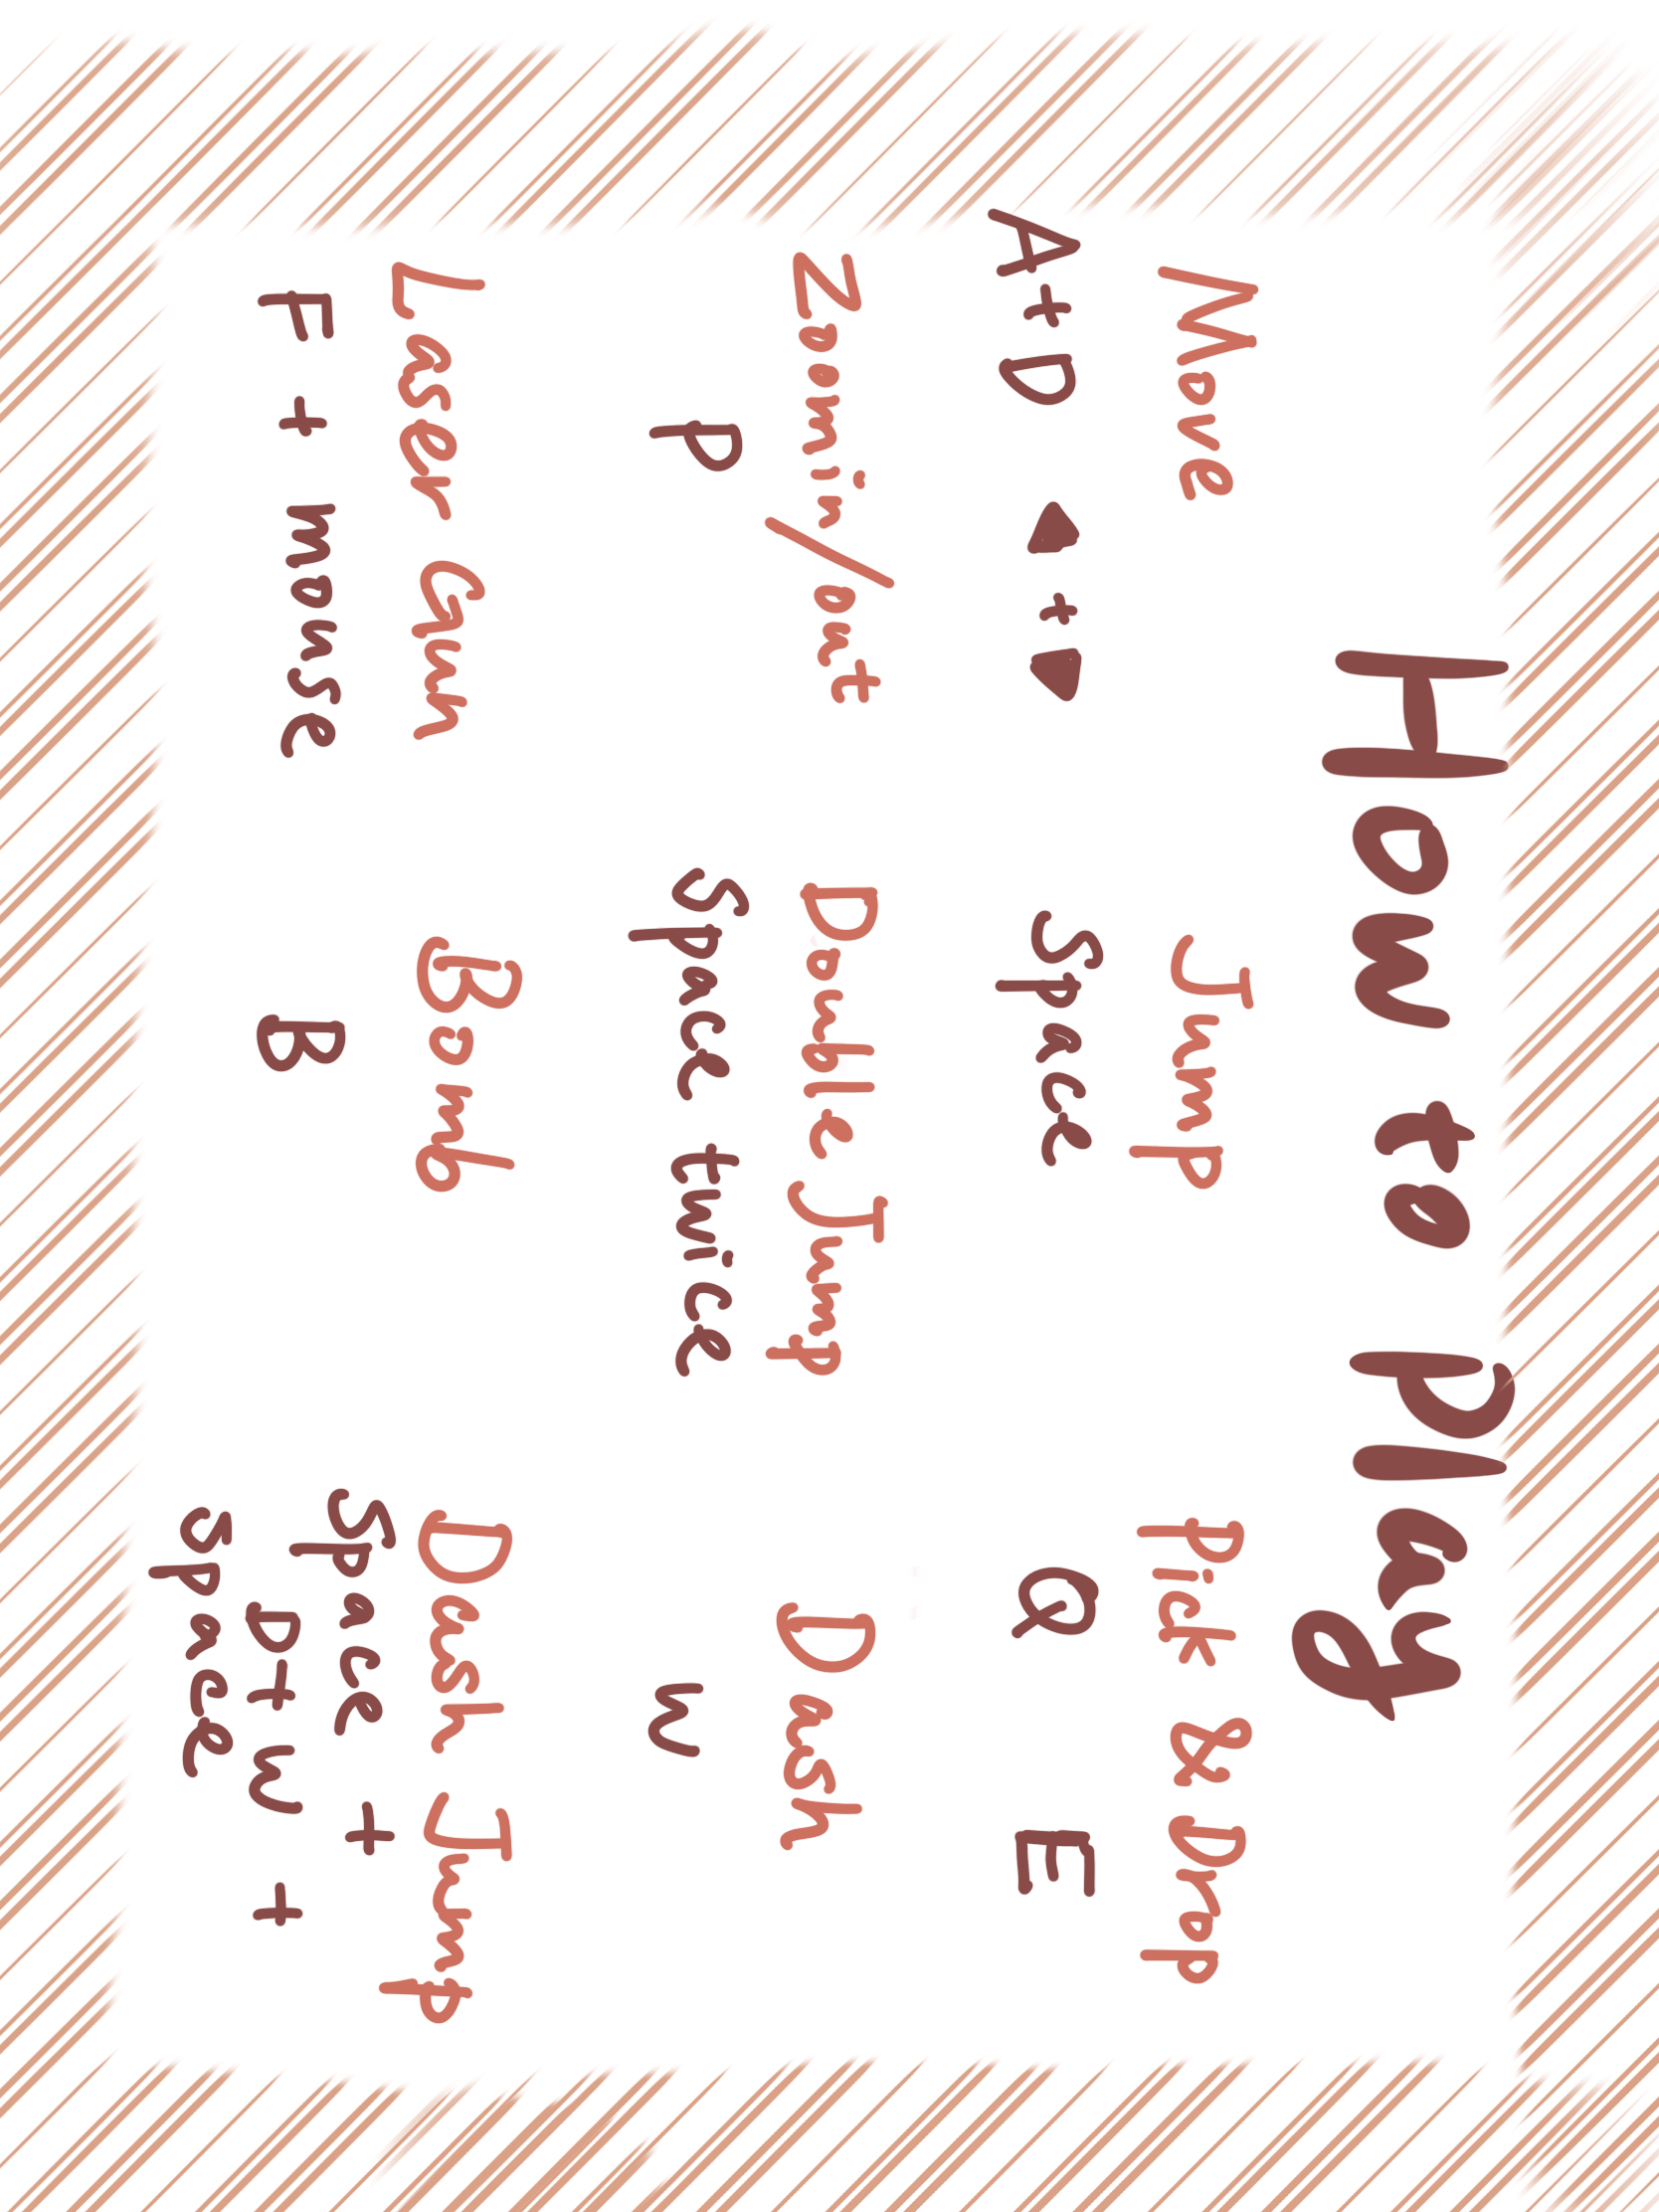 How to Play
Move
A+D ◀ + ▶
Jump
Space
Pick & Drop
Q E
Zoom in/out
P
Double Jump
Space twice
Dash
W
Laser Gun
F + mouse
Bomb
B
Dash Jump
Space +
D+W +
Space